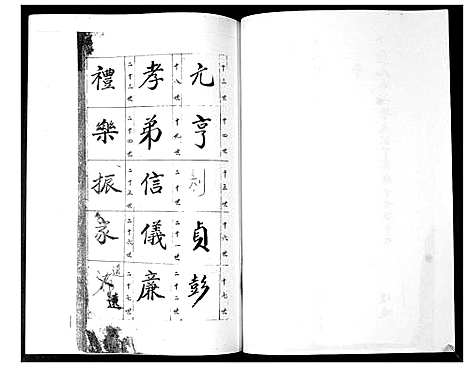 十三世 十四世 十五世 十六世 十七世
元亨利貞彭
十八世 十九世 二十世 二十一世 二十二世
孝弟信儀廉
二十三世 二十四世 二十五世 二十六世 二十七世
禮樂振家
遠